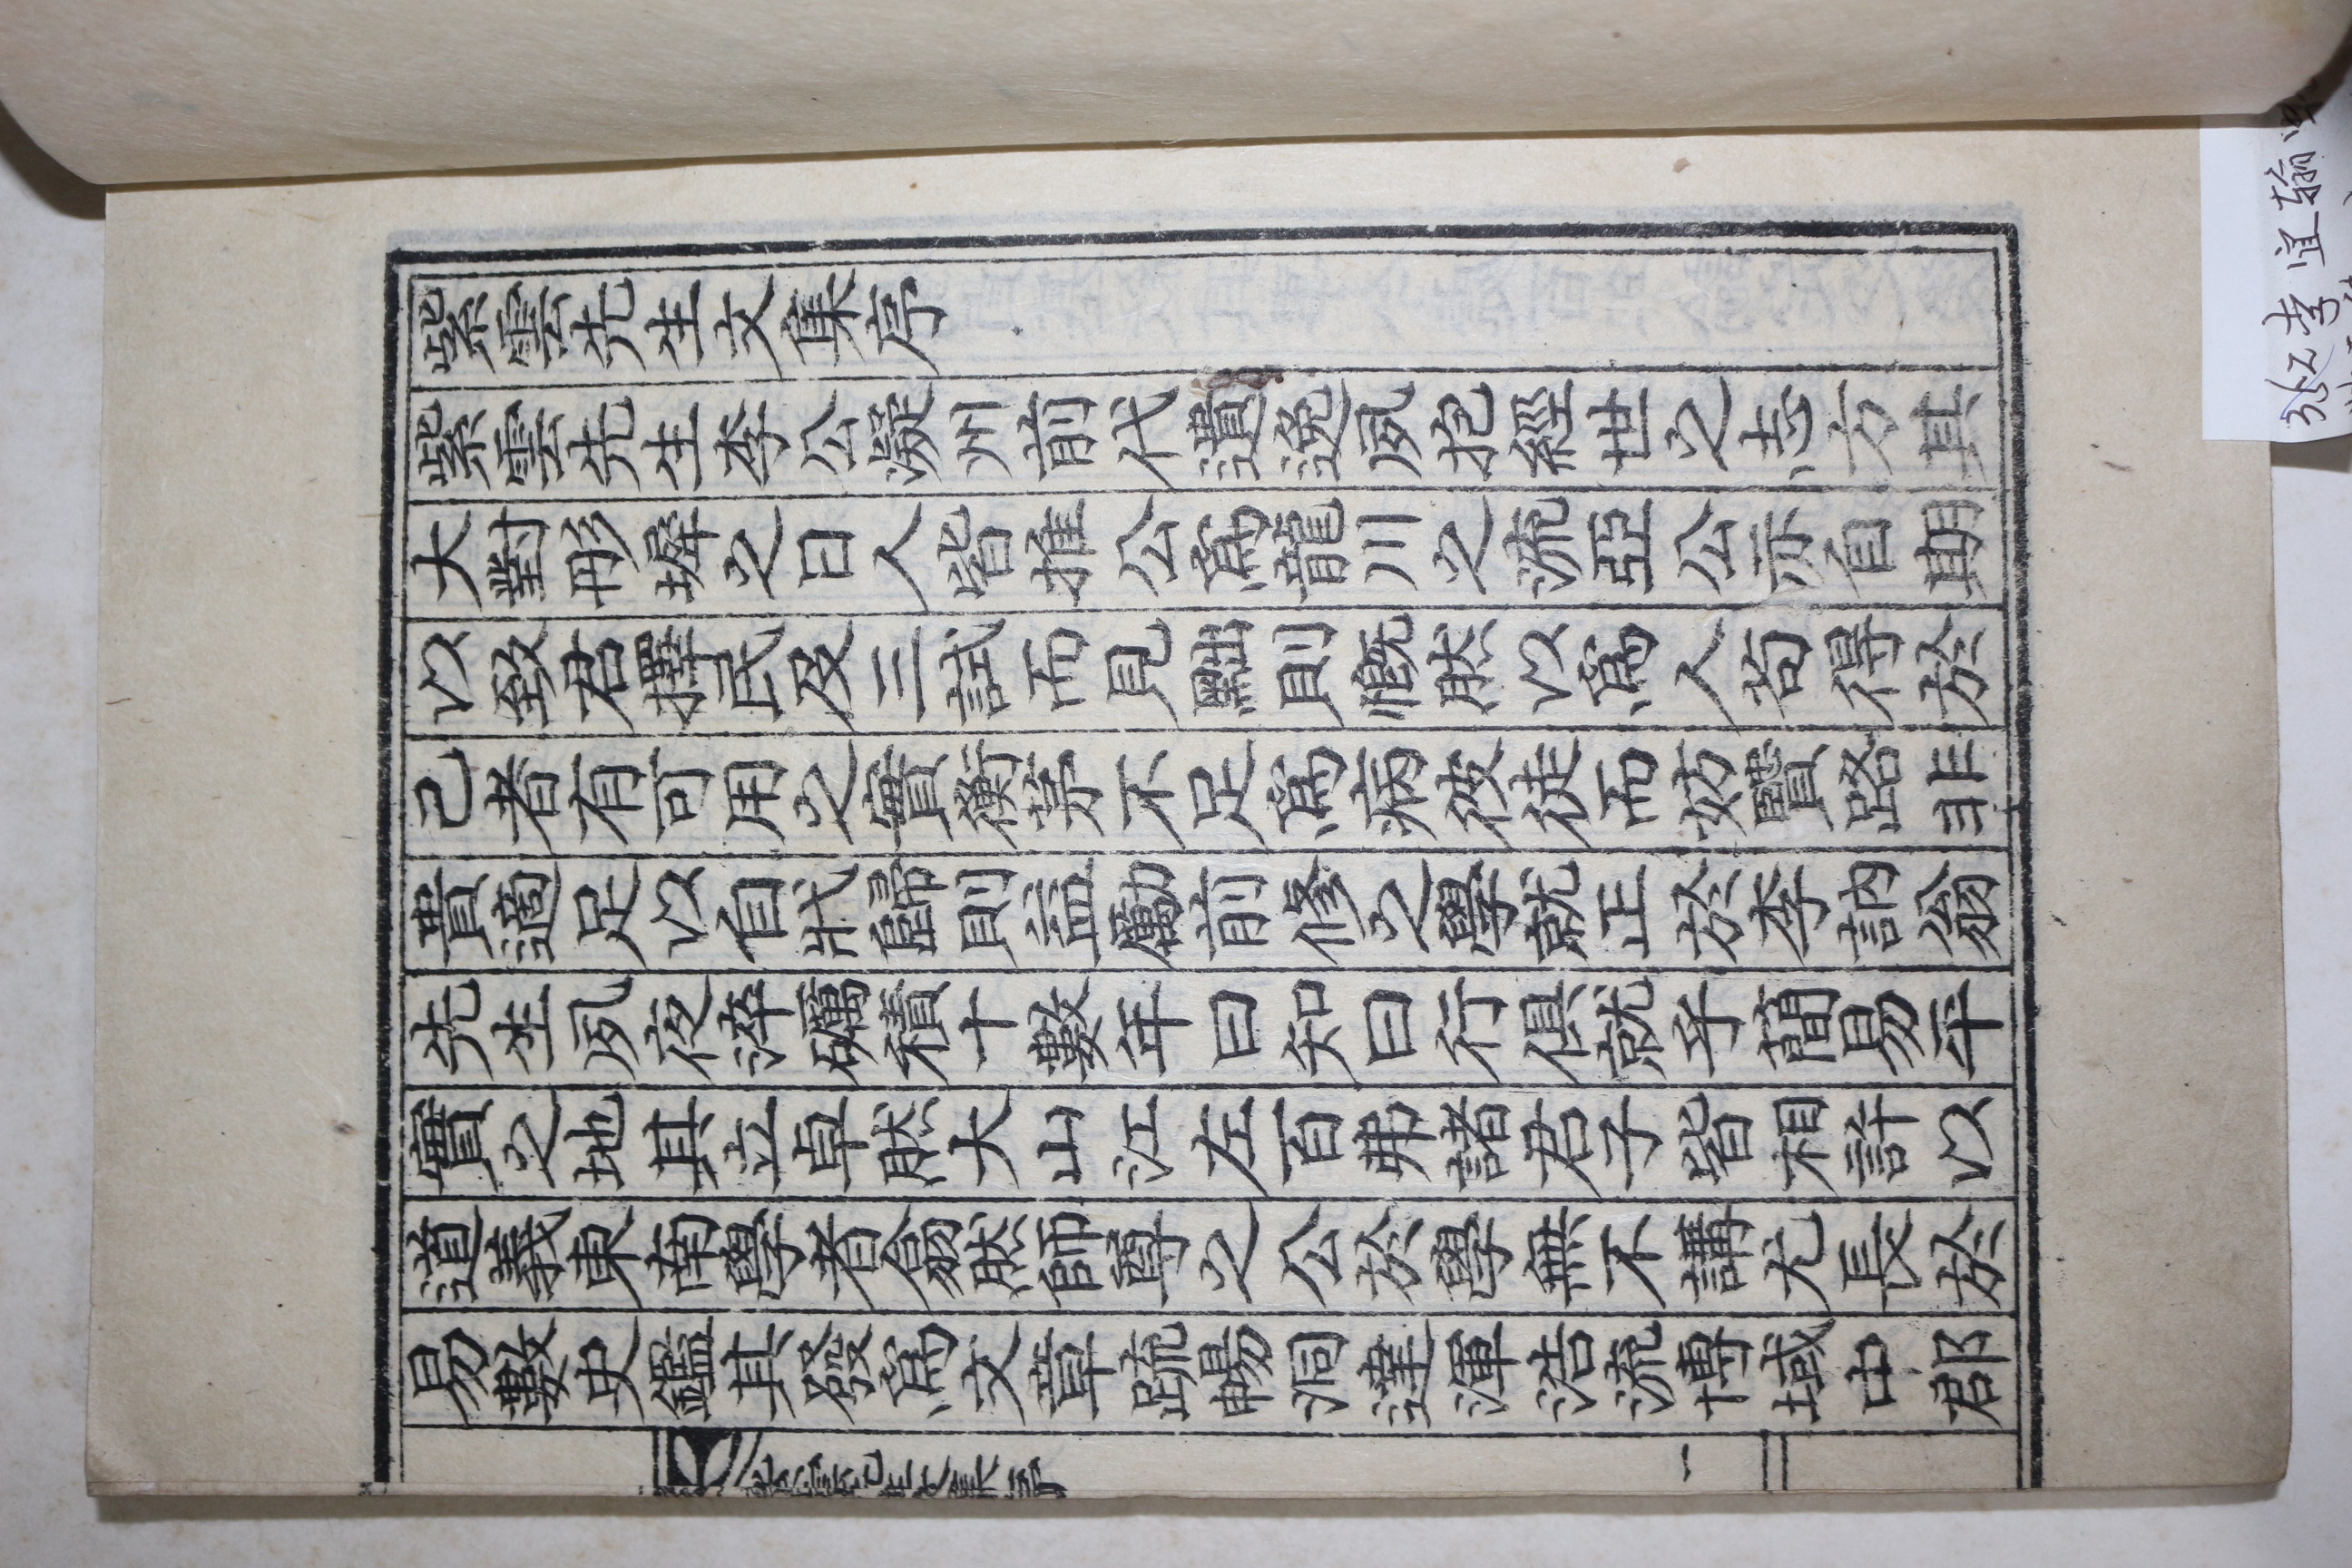 紫雲先生文集序
紫雲先生李公凝州前代遺逸夙抱經世之志方其
大對彤墀之日人皆推公爲龍川之流亞公亦自期
以致君擇民及三試而見黜則慨然以爲人苟得於
己者有可用之實衡茅不足爲病彼徒而妨賢路非
貴適足以自戕歸則益勵前修之學就正於李訥翁
先生夙夜淬礪積十數年曰知曰行俱就乎簡易平
實之地其立卓然大山江左百弗諸君子皆相許以
道義東南學者翕然師尊之公於學無不講尤長於
易數史鑑其發爲文章疏暢洞達渾浩流博域中郡
一
李宜翰